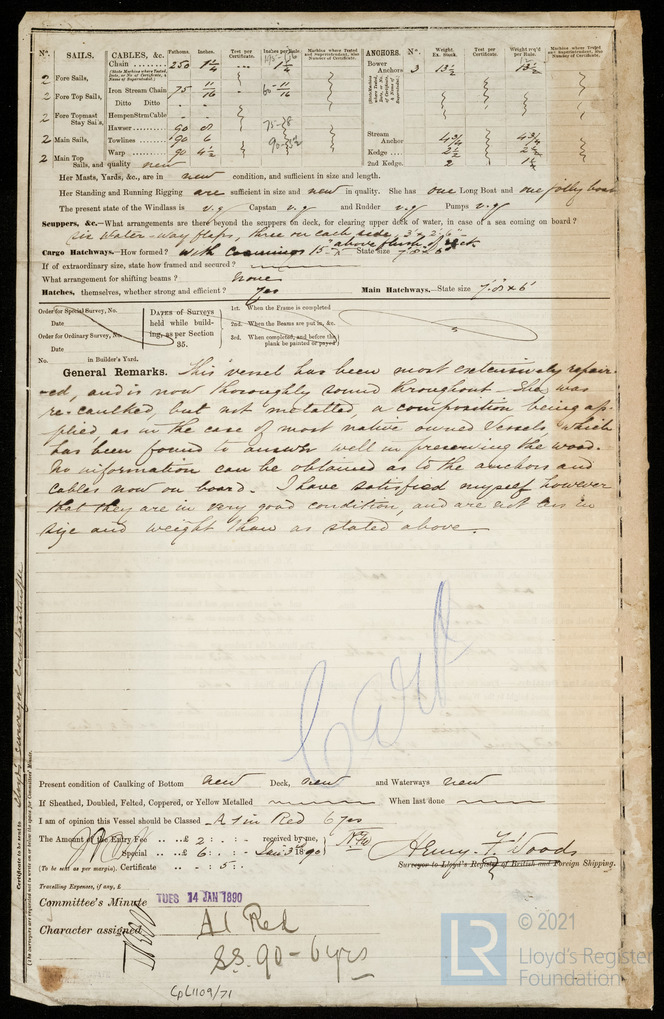 Nº. SAILS. CABLES, &c. Fathoms. Inches. Test per Certificate. Inches per Rule. Machine where Tested and Superintendent, also Number of Certificate. ANCHORS. Nº. Weight. Ex. Stock. Test per Certificate. Weight req'd per Rule. Machine where Tested and Superintendent, also Number of Certificate.
2 Fore Sails, Chain 250 1 1/4 1 1/4 Bower Anchors 3 13 1/2 13 1/2
2 Fore Top Sails, Iron Stream Chain 75 11/16 60 - 11/16
Ditto Ditto
2 Fore Topmast Stay Sails, Hempen Strm Cable
Hawser 90 8 75 - 8
2 Main Sails, Towlines 90 6 Stream Anchor 4 3/4 4 3/4
2 Main Top Sails, and quality new Warp 90 4 1/2 Kedge 2 1/2 2 1/2
2nd Kedge. 2
Her Masts, Yards, &c., are in new condition, and sufficient in size and length.
Her Standing and Running Rigging are sufficient in size and new in quality. She has one Long Boat and one jolly boat
The present state of the Windlass is v.g Capstan v.g and Rudder v.g Pumps v.g
Scuppers, &c.—What arrangements are there beyond the scuppers on deck, for clearing upper deck of water, in case of a sea coming on board?
Six Water-way flaps, three on each side, 3" 2'6"
Cargo Hatchways.—How formed? with Coamings 15" above flush of deck State size 7'.8" x 6'
If of extraordinary size, state how framed and secured?
What arrangement for shifting beams? None
Hatches, themselves, whether strong and efficient? Yes Main Hatchways.—State size 7'.8" x 6'
Order for Special Survey, No. DATES of Surveys held while building, as per Section 35. 1st. When the Frame is completed
Date 2nd. When the Beams are put in, &c.
Order for Ordinary Survey, No. 3rd. When completed, and before the plank be painted or payed
Date
No. in Builder's Yard.
General Remarks. This vessel has been most extensively repair-
-ed, and is now thoroughly sound throughout She was
re-caulked, but not metalled, a composition being ap-
-plied, as in the case of most native owned Vessels which
has been found to answer well in preserving the wood.
No information can be obtained as to the anchors and
cables now on board. I have satisfied myself however
that they are in very good condition, and are not less in
size and weight than as stated above.
Present condition of Caulking of Bottom new Deck, new and Waterways new
If Sheathed, Doubled, Felted, Coppered, or Yellow Metalled When last done
I am of opinion this Vessel should be Classed A 1 in Red 6 yrs
The Amount of the Entry Fee £ 2 : : received by me,
Special £ 6 : : Jan 3 1890
(To be sent as per margin). Certificate : 5 :
Henry F. Woods
Surveyor to Lloyd's Register of British and Foreign Shipping.
Travelling Expenses, if any, £
Committee's Minute TUES 14 JAN 1890
Character assigned A1 Red
S.S. 90 - 6 yrs
Certificate to be sent to Lloyd's surveyor Constantinople
(The surveyors are requested not to write on or below the space for Committee's Minute.
© 2021
LR Lloyd's Register
Foundation